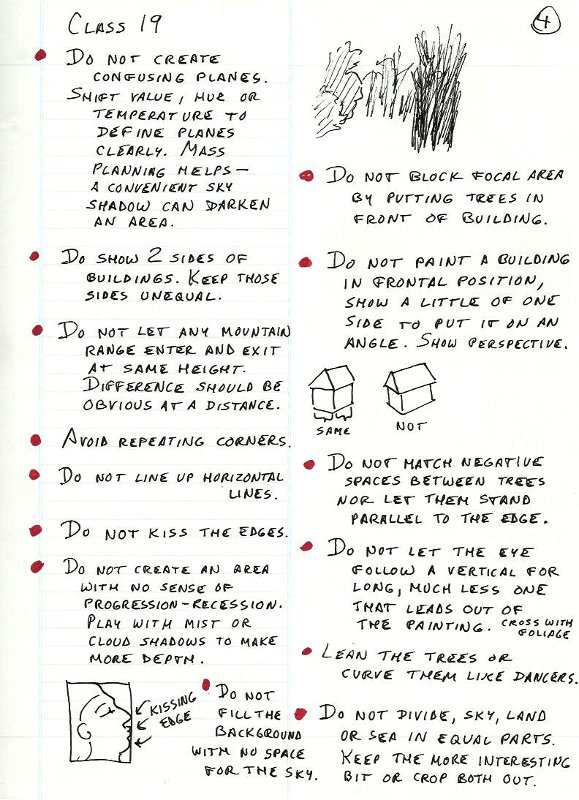 CLASS 19
4
DO NOT CREATE
CONFUSING PLANES.
SHIFT VALUE, HUE OR
TEMPERATURE TO
DEFINE PLANES
CLEARLY. MASS
PLANNING HELPS—
A CONVENIENT SKY
SHADOW CAN DARKEN
AN AREA.
DO SHOW 2 SIDES OF
BUILDINGS. KEEP THOSE
SIDES UNEQUAL.
DO NOT LET ANY MOUNTAIN
RANGE ENTER AND EXIT
AT SAME HEIGHT.
DIFFERENCE SHOULD BE
OBVIOUS AT A DISTANCE.
AVOID REPEATING CORNERS.
DO NOT LINE UP HORIZONTAL
LINES.
DO NOT KISS THE EDGES.
DO NOT CREATE AN AREA
WITH NO SENSE OF
PROGRESSION-RECESSION.
PLAY WITH MIST OR
CLOUD SHADOWS TO MAKE
MORE DEPTH.
KISSING
EDGE
DO NOT
FILL THE
BACKGROUND
WITH NO SPACE
FOR THE SKY.
DO NOT BLOCK FOCAL AREA
BY PUTTING TREES IN
FRONT OF BUILDING.
DO NOT PAINT A BUILDING
IN FRONTAL POSITION,
SHOW A LITTLE OF ONE
SIDE TO PUT IT ON AN
ANGLE. SHOW PERSPECTIVE.
SAME
NOT
DO NOT MATCH NEGATIVE
SPACES BETWEEN TREES
NOR LET THEM STAND
PARALLEL TO THE EDGE.
DO NOT LET THE EYE
FOLLOW A VERTICAL FOR
LONG, MUCH LESS ONE
THAT LEADS OUT OF
THE PAINTING. CROSS WITH
FOLIAGE
LEAN THE TREES OR
CURVE THEM LIKE DANCERS.
DO NOT DIVIDE, SKY, LAND
OR SEA IN EQUAL PARTS.
KEEP THE MORE INTERESTING
BIT OR CROP BOTH OUT.